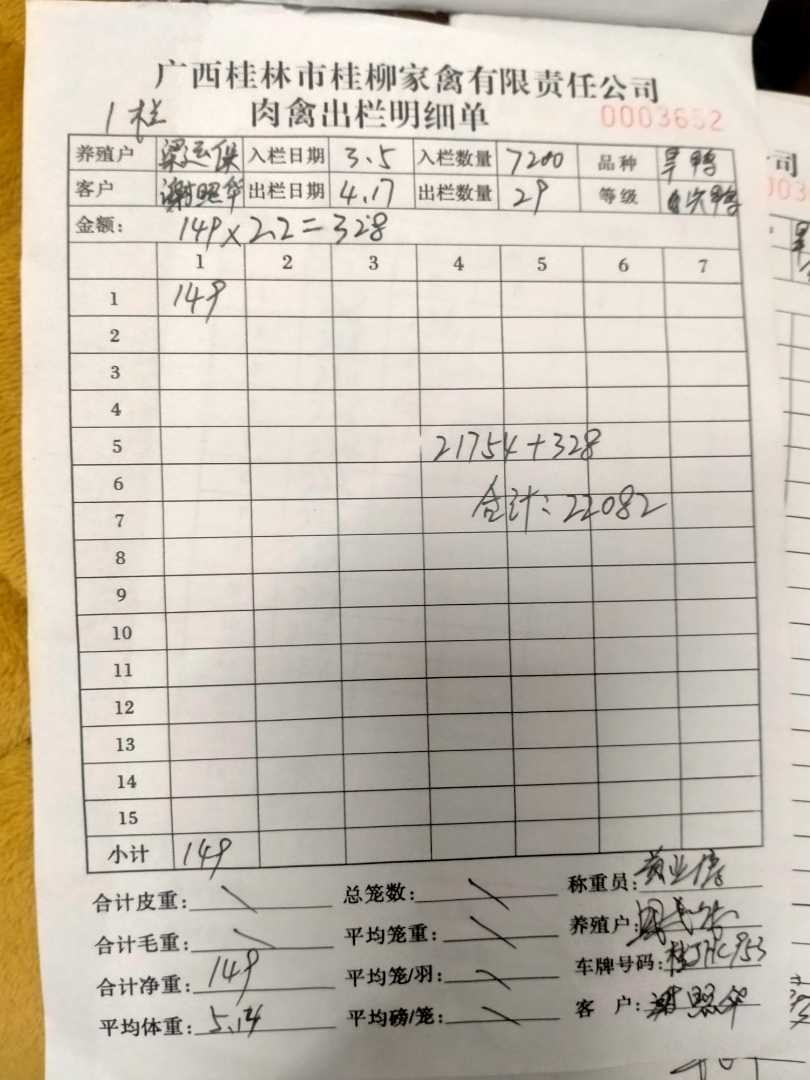 广西桂林市桂柳家禽有限责任公司
1栏 肉禽出栏明细单 0003652
养殖户 入栏日期 3.5 入栏数量 7200 品种 旱鸭
客户 谢照华 出栏日期 4.17 出栏数量 29 等级
金额: 149×2.2=328
1 2 3 4 5 6 7
1 149
2
3
4
5 21754+328
6
7 合计:22082
8
9
10
11
12
13
14
15
小计 149
合计皮重: 总笼数: 称重员:
合计毛重: 平均笼重: 养殖户:
合计净重: 149 平均笼/羽: 车牌号码: 桂JHC953
平均体重: 5.14 平均磅/笼: 客 户: 谢照华